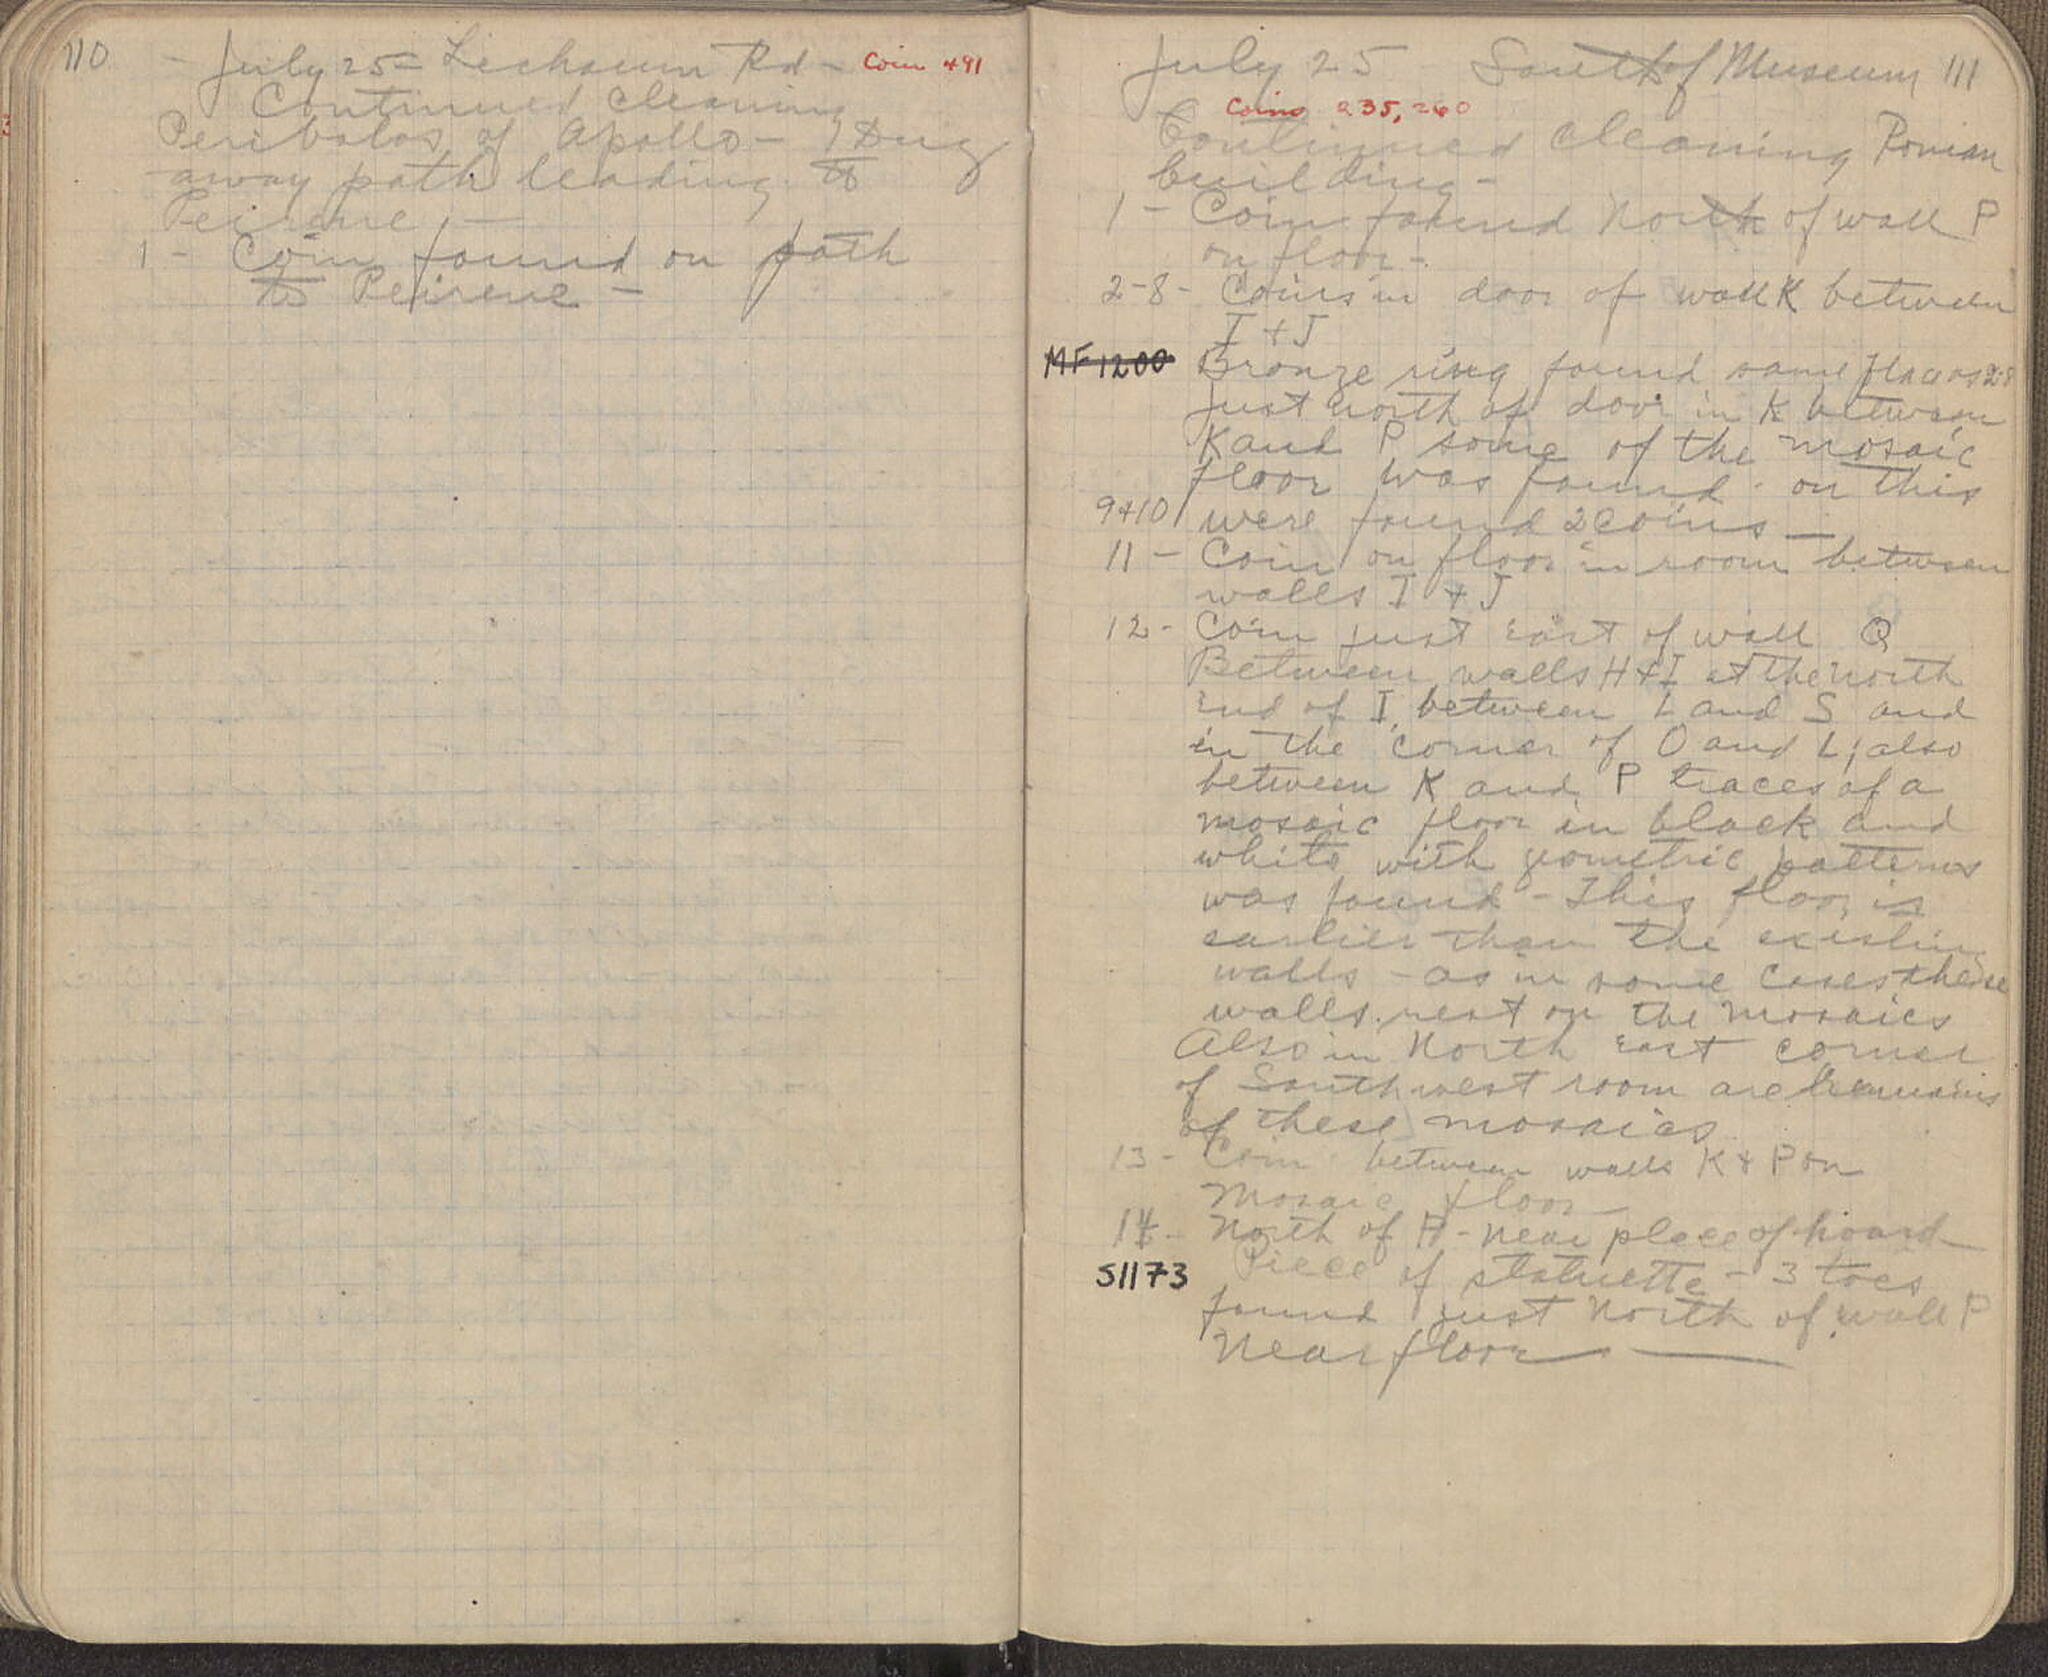 110
July 25 = Lechaeum Rd - Coin 491
Continued cleaning
Peribolos of Apollo - Dug
away path leading to
Peirene -
1 - Coin found on path
to Peirene -
July 25 South of Museum 111
Coins 235, 260
Continued cleaning Roman
building -
1 - Coin found North of wall P
on floor -
2-8 - Coins in door of wall K between
I + J
MF 1200 Bronze ring found same place as 2-8
just north of door in K between
K and P some of the mosaic
floor was found - on this
9+10 were found 2 coins -
11 - Coin on floor in room between
walls I + J
12 - Coin just east of wall Q
Between walls H + I at the north
end of I, between L and S and
in the corner of O and L, also
between K and P traces of a
mosaic floor in black and
white with geometric patterns
was found - This floor is
earlier than the existing
walls - as in some cases these
walls rest on the mosaics
Also in North east corner
of South west room are remains
of these mosaics
13 - Coin between walls K + P on
Mosaic floor
14 - North of H - near place of hoard -
S1173 Piece of statuette - 3 toes
found just North of wall P
Near floor -